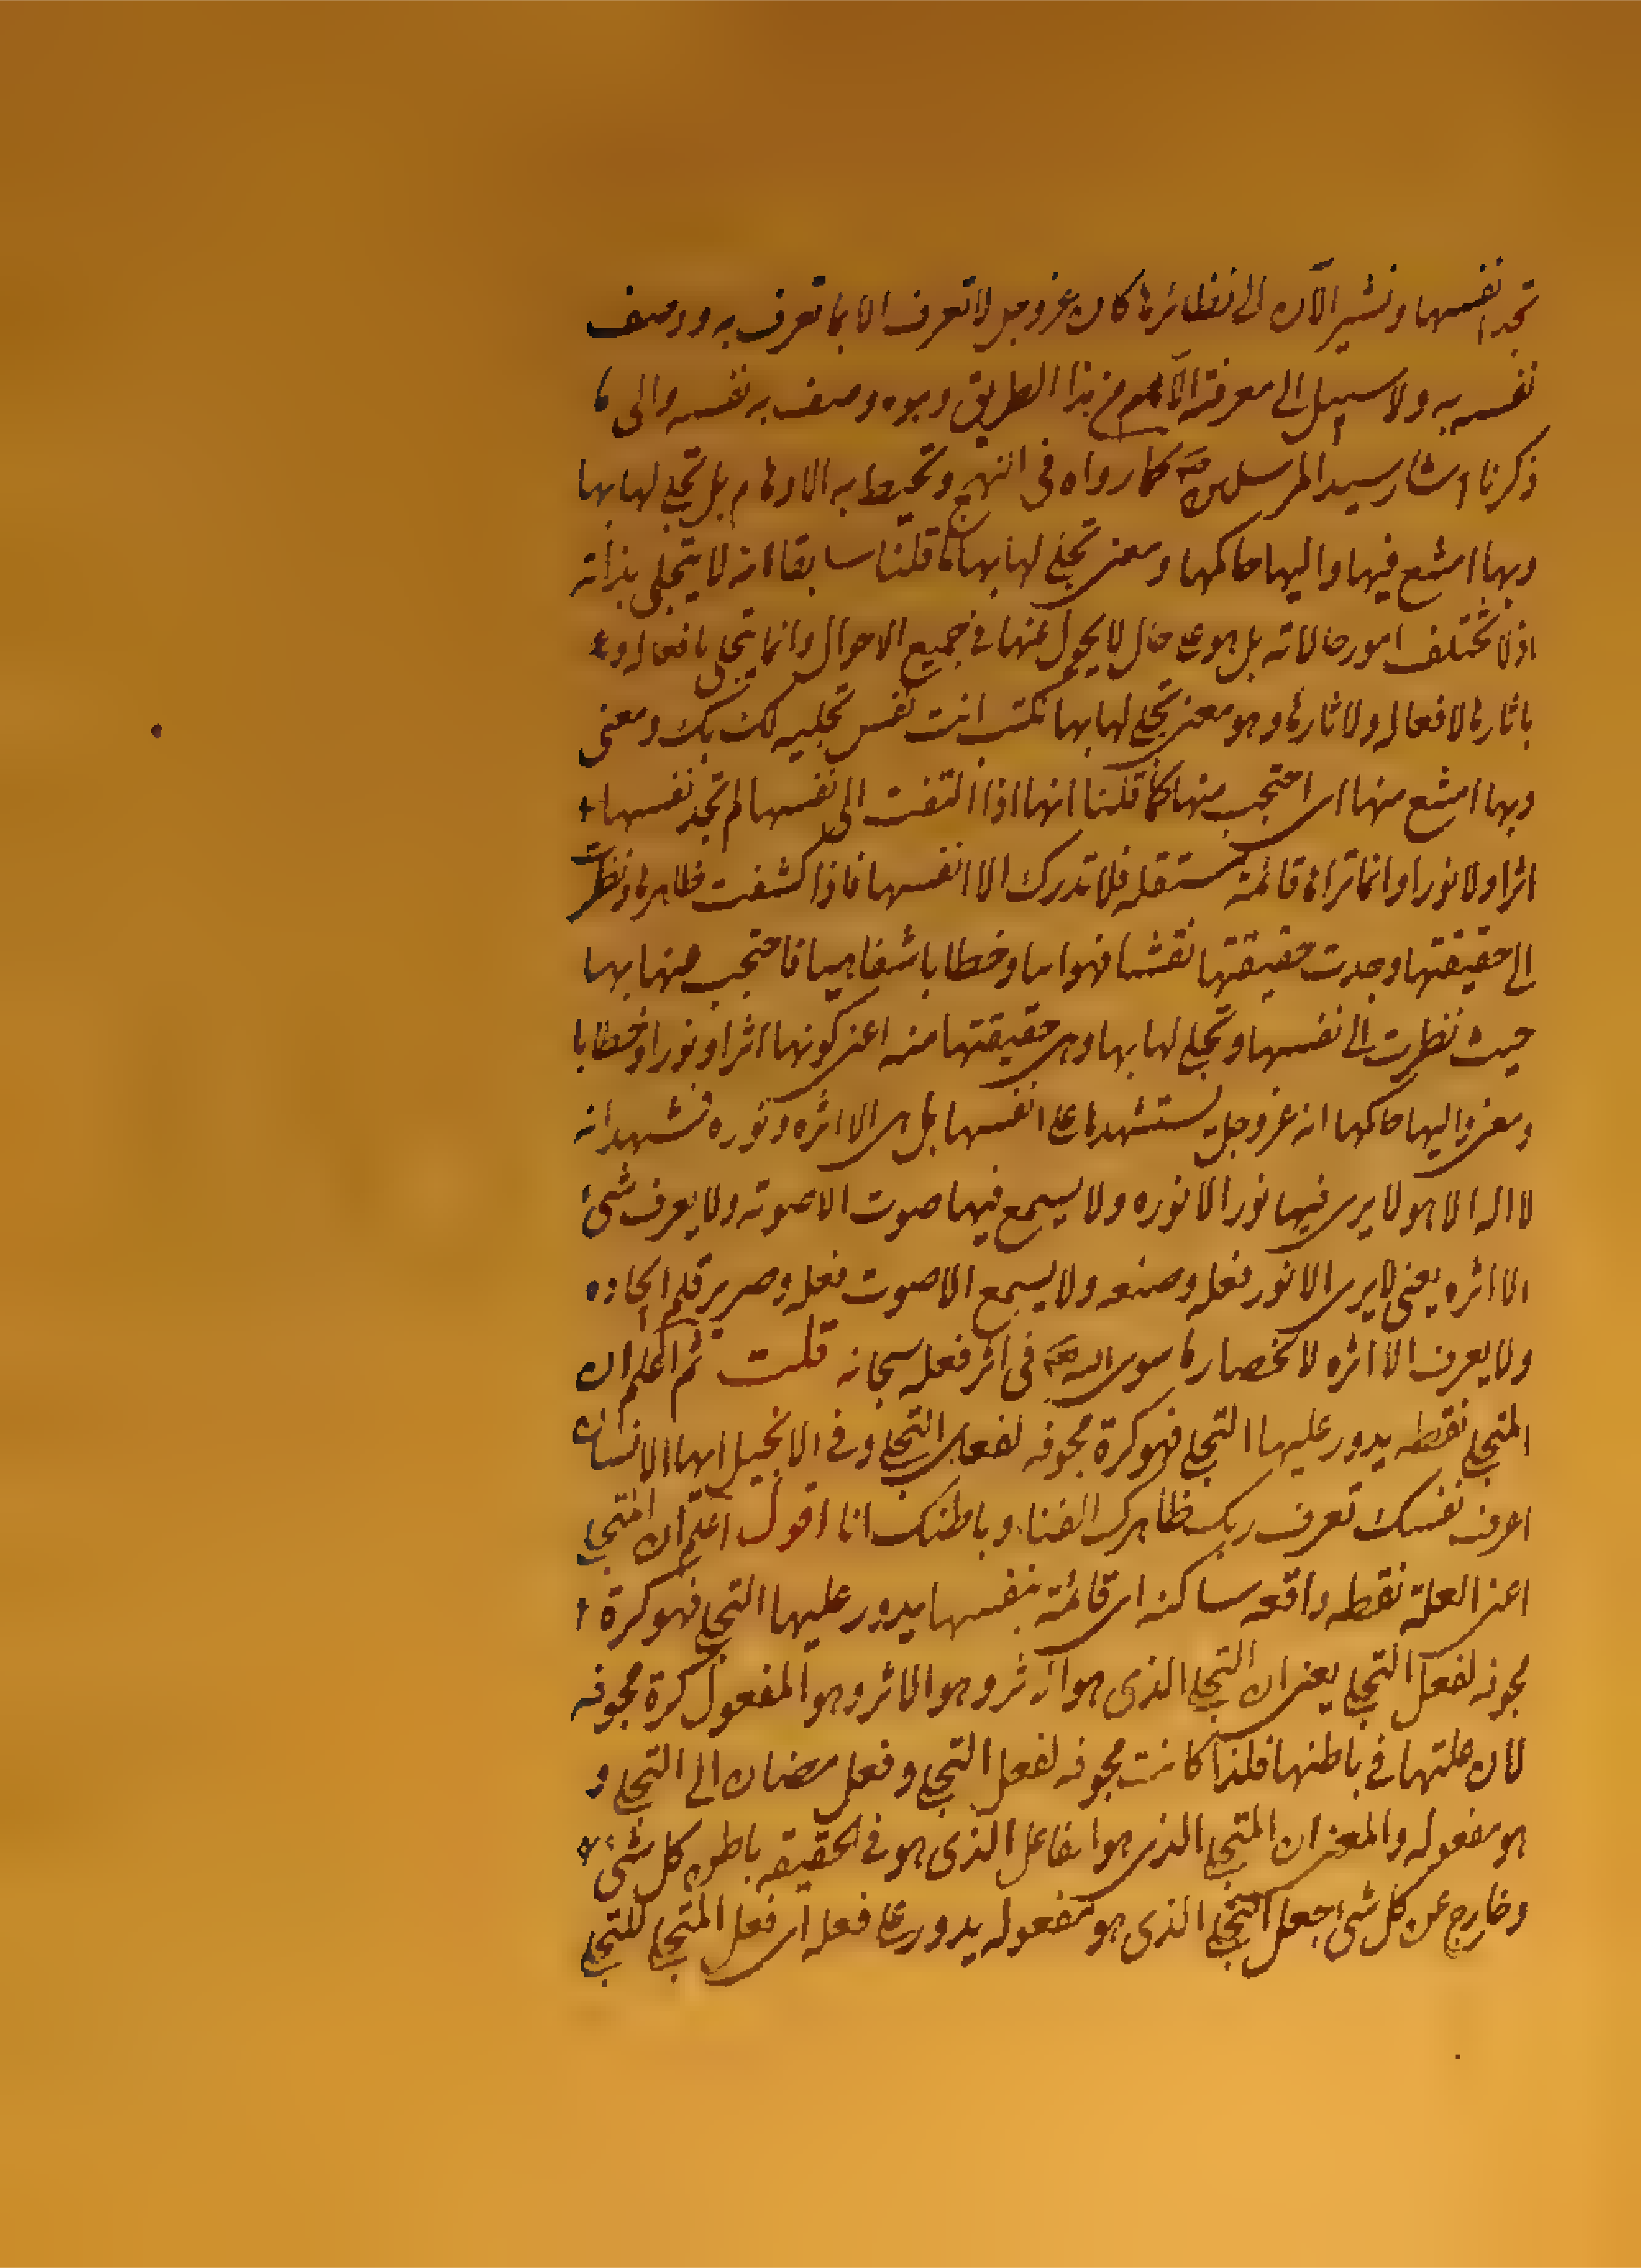 تجد انفسها و نشير الآن الى نظائرها كان عز و جل لا تعرف الا بما تعرف به و وصف
نفسه به و لا سبيل الى معرفته الا من هذا الطريق و هو ما وصف به نفسه و الى ما
ذكرنا اشار سيد المرسلين كما رواه فى النهج و تحيط به الاوهام بل تجلى لها بها
و بها امتنع فيها و اليها حاكمها و معنى تجلى لها بها كما قلنا سابقا انه لا يتجلى بذاته
اذ لا تختلف امور حالاته بل هو على حال لا يحول عنها فى جميع الاحوال و انما يتجلى بافعاله و
باثارها لافعاله و لاثارها و هو معنى تجلى لها بها فكنت انت نفس تجليه لك بك و معنى
و بها امتنع منها اى احتجب منها كما قلنا انها اذا التفت الى نفسها لم تجد نفسها
اثرا و لا نورا و انما تراها قائمة مستقله فلا تدرك الا انفسها فاذا كشفت ظاهرها و نظرت
الى حقيقتها وجدت حقيقتها نقشا فهوانيا و خطابا شفاهيا فاحتجب منها بها
حيث نظرت الى نفسها و تجلى لها بها و هى حقيقتها منه اعنى كونها اثرا و نورا و خطابا
و معنى و اليها حاكمها انه عز و جل يستشهدها على انفسها بل هى الا اثره و نوره فتشهد انه
لا اله الا هو لا يرى فيها نور الا نوره و لا يسمع فيها صوت الا صوته و لا يعرف شئ
الا اثره يعنى لا يرى الا نور فعله و صنعه و لا يسمع الا صوت فعله و صرير قلم ايجاده
و لا يعرف الا اثره لانحصار ما سوى الله فى اثر فعله سبحانه قلت ثم اعلم ان
المتجلى نقطه يدور عليها التجلى فهو كرة مجوفه لفعل التجلى و فى الانجيل ايها الانسان
اعرف نفسك تعرف ربك ظاهرك الفناء و باطنك انا اقول اعلم ان المتجلى
اعنى العلة نقطه واقعه ساكنه اى قائمة بنفسها يدور عليها التجلى فهو كرة
مجوفه لفعل التجلى يعنى ان التجلى الذى هو اثر و هو الاثر و هو المفعول كرة مجوفه
لان علتها فى باطنها فلذا كانت مجوفه لفعل التجلى و فعل مضاف الى التجلى و
هو مفعوله و المعنى ان المتجلى الذى هو الفاعل الذى هو فى الحقيقه باطن كل شئ
و خارج عن كل شئ جعل التجلى الذى هو مفعوله يدور على فعله اى فعل المتجلى للتجلى